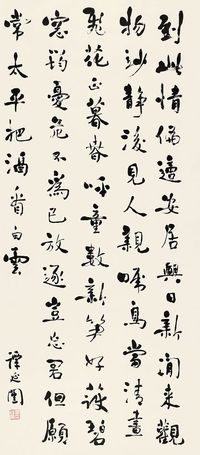 到此情偏適安居興日新閒來觀
物妙靜後見人親囀鳥當清晝
飛花正暮春呼童數新笋好護碧
窗筠憂危不為己放逐豈忘君但願
常太平把酒看白雲
譚延闓